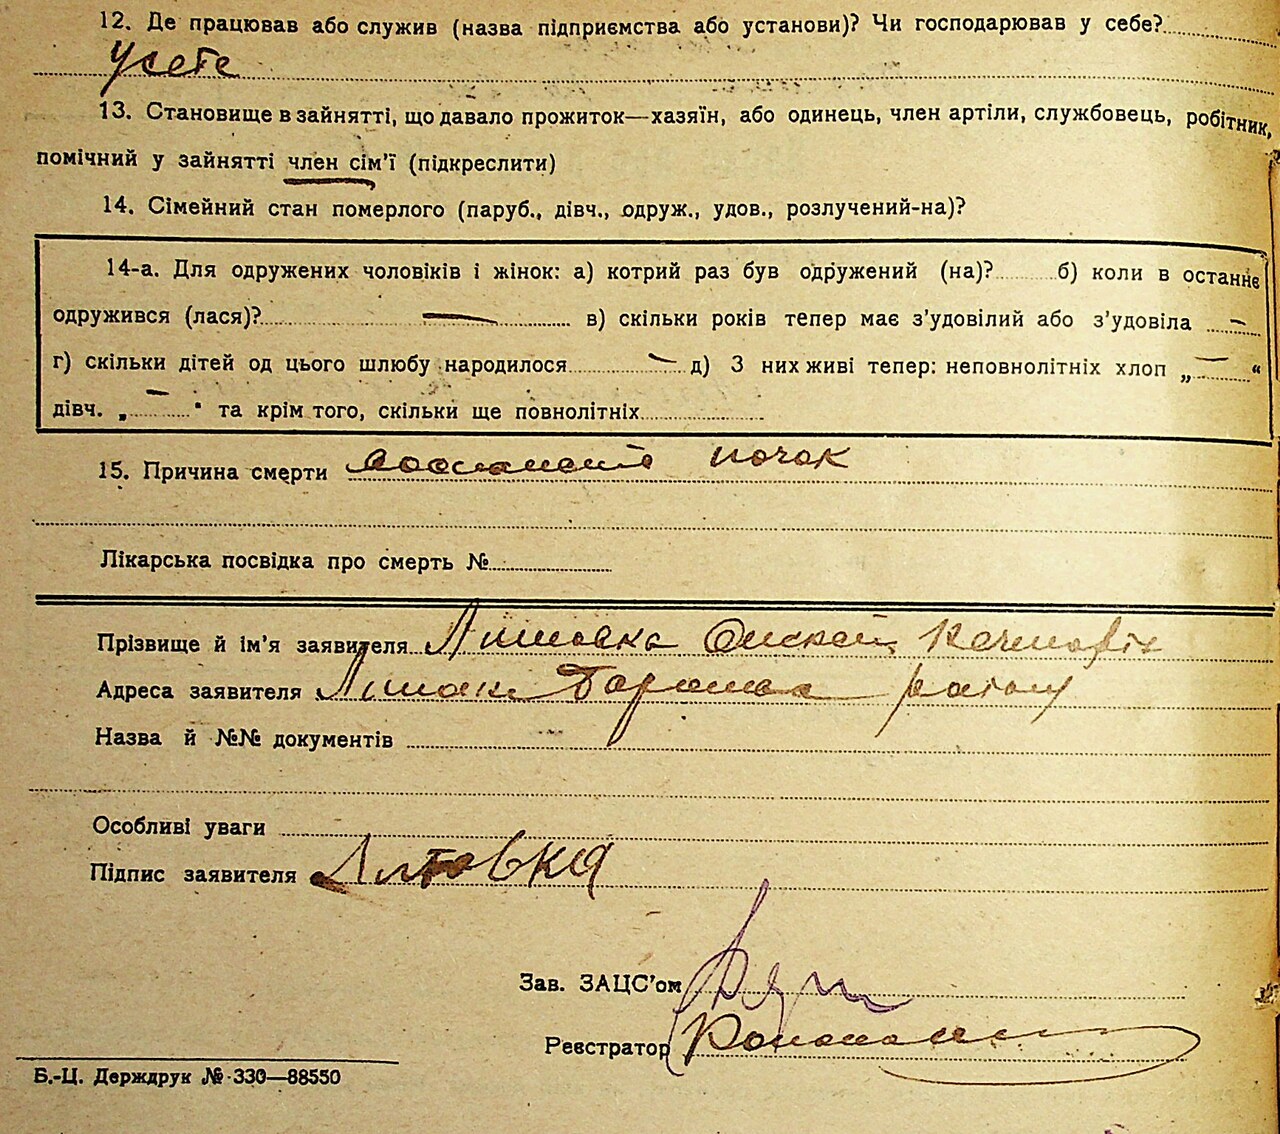 12. Де працював або служив (назва підприємства або установи)? Чи господарював у себе?
У себе
13. Становище в зайнятті, що давало прожиток—хазяїн, або одинець, член артіли, службовець, робітник,
помічний у зайнятті член сім'ї (підкреслити)
14. Сімейний стан померлого (паруб., дівч., одруж., удов., розлучений-на)?
14-а. Для одружених чоловіків і жінок: а) котрий раз був одружений (на)? б) коли в останнє
одружився (лася)? — в) скільки років тепер має з'удовілий або з'удовіла —
г) скільки дітей од цього шлюбу народилося — д) З них живі тепер: неповнолітніх хлоп „—“
дівч. „—“ та крім того, скільки ще повнолітніх
15. Причина смерти воспаление почок
Лікарська посвідка про смерть №
Прізвище й ім'я заявителя Литовка
Адреса заявителя
Назва й №№ документів
Особливі уваги
Підпис заявителя Литовка
Зав. ЗАЦС'ом
Реєстратор
Б.-Ц. Держдрук № 330—88550